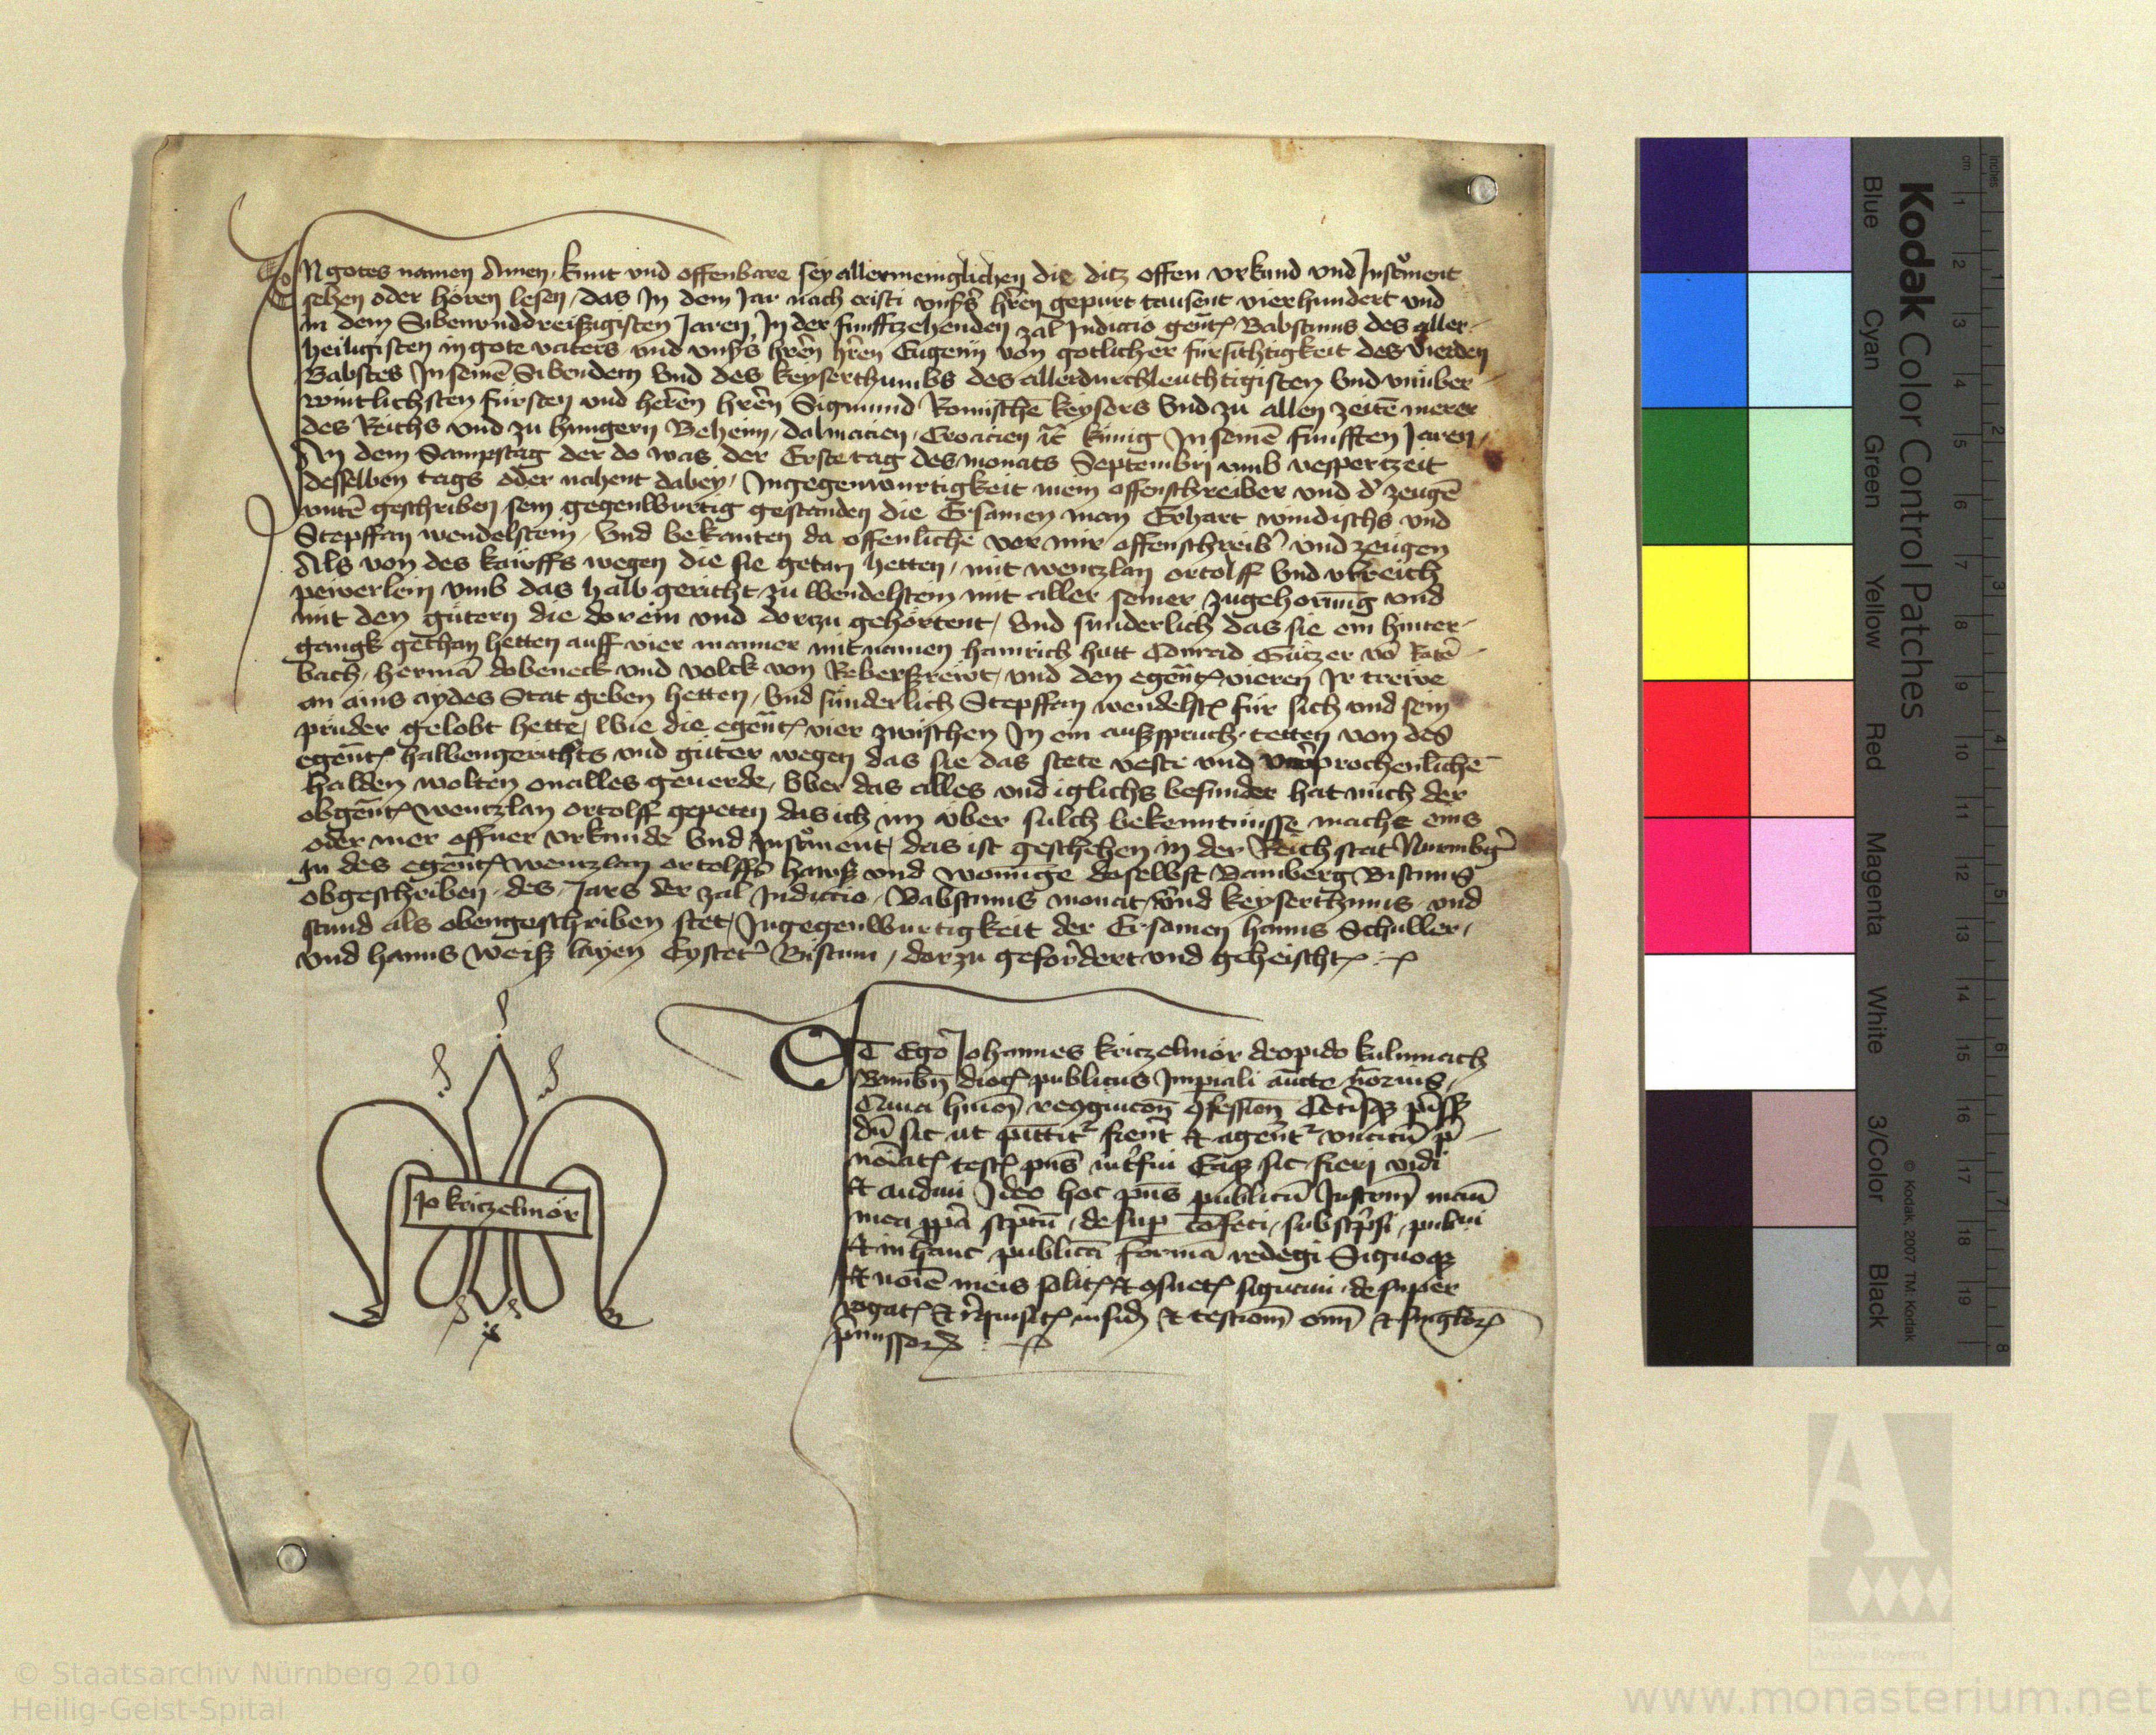 In gotes namen Amen. kunt vnd offenbare sey allermeniglichen die ditz offen vrkund vnd Instrument
sehen oder hören lesen, das In dem Jar nach cristi vnsers hren gepurt tausent vierhundert vnd
in dem Sibenvnddreissigisten Jaren In der funfftzehenden zal Indictio gent Babstums des aller-
heiligisten in gote vaters vnd vnsers hren hren Eugenij von gotlicher fursichtigkeit des vierden
Babstes In seinē Sibenden Vnd des keyserthumbs des allerdurchleuchtigisten Vnd vnüber-
wintlichsten fursten vnd heren hren Sigmund Romischē keysers Vnd zu allen zeitē merer
des Reichs vnd zu hungern Beheim, dalmacien, Croacien ꝛc̄ kunig In seinē funfften Jaren,
An dem Sampstag der do was der Erste tag des monats Septembrj vmb vespertzeit
desselben tags oder nahent dabey, Ingegenwurtigkeit mein offenschreiber vnd d' zeugē
vntē geschriben sein gegenwurtig gestanden die Ersamen man Erhart windischs vnd
Stepffan wendelstein, Vnd bekanten da offenlichē vor mir offenschreib' vnd zeugen
Als von des kauffs wegen die sie getan hetten, mit wentzlan ortolff Vnd vlreich
peierlein vmb das halb gericht zu Wendelstein mit aller seiner zugehorūng vnd
mit den gütern die dorein vnd dorzu gehörtent, Vnd sunderlich das sie ein hinter-
gangk gethan hetten auff vier manner mit namen hainrich hutt Conrad Gutzer vō Ratē-
bach, hermā dobeneck vnd volck von Reberszrewt, vnd den egent vieren Ir trewe
an ains aydes Stat geben hetten, Vnd sunderlich Stepffan wendelst für sich vnd sein
pruder gelobt hette, Wie die egent vier zwischen In ein auszspruch tetten von des
egent halbengerichts vnd güter wegen das sie das stete veste vnd vnprochenlichē
halden wolten on alles geuerde, Vber das alles vnd iglichs besunder hat mich der
obgent wentzlan ortolff gepeten das ich im über sulch bekenntnusse mache eins
oder mer offner vrkunde Vnd Instrument, das ist geschehen in der Reichstat Nurmbg
In des egent wentzlan ortolffs hawsz vnd wonūnge daselbst Bamberg Bistums
obgeschriben des Jars der zal Indictio, Babstums monat, vnd keyserthums vnd
stund als obengeschriben stet, Ingegenwurtigkeit der Ersamen hanns Schuller,
vnd hanns Weisz layen Eystet' Bistum, dorzu gefordert vnd geheischt
Et Ego Johannes kritzelmör de opido kulmnach
Bambn dioc publicus Impiali aucte notrius,
dū sic ut pmittit' fierent & agerent' vnacū p-
noiat test pns int'fui Eaq sic fierj vidi
Et audiui Ideo hoc pns publicū Instrm manu
mea ppa scptū, desup cōfeci, subscpsi, pubui
Et in hanc publicā formā redegi Signoq
Et noiē meis solit & ꝯsuet signaui desuper
rogat & requisit in fid & testiom oim & singlor
pmissor
Jo kritzelmör
Kodak Color Control Patches
Blue Cyan Green Yellow Red Magenta White 3/Color Black
© Kodak, 2007 TM: Kodak
cm 1 2 3 4 5 6 7 8 9 10 11 12 13 14 15 16 17 18 19
inches 1 2 3 4 5 6 7 8
© Staatsarchiv Nürnberg 2010
Heilig-Geist-Spital
Staatliche
Archive Bayerns
www.monasterium.net